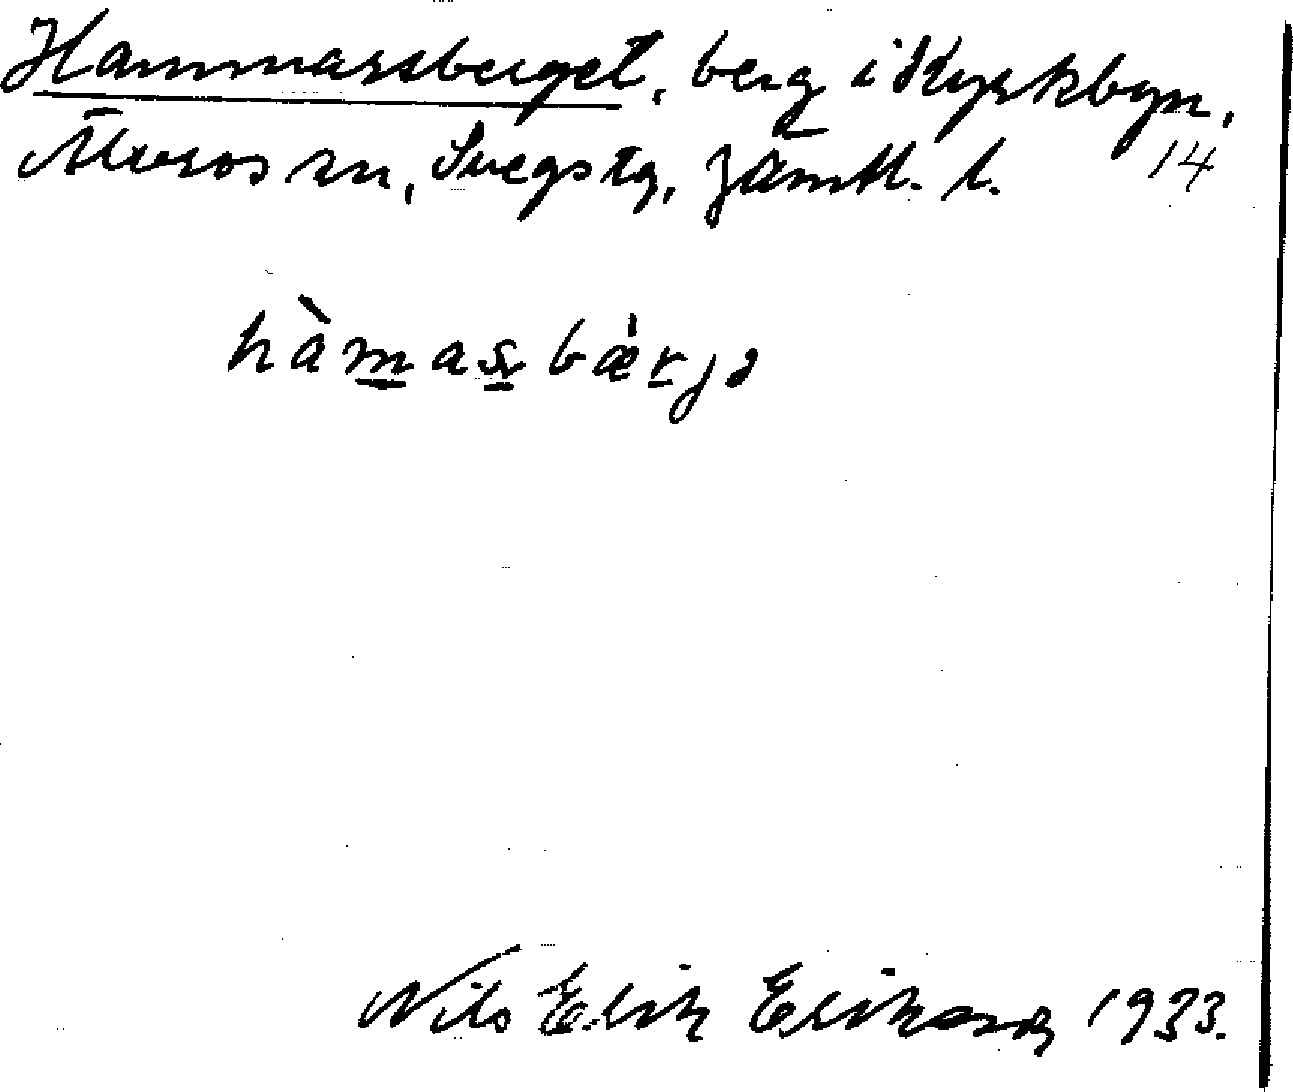 Hammarsberget, berg i Kyrkbyn,
Älvros sn, Svegs tg, Jämtl. l. 14
hàmasbærjə
Nils Erik Eriksson 1933.